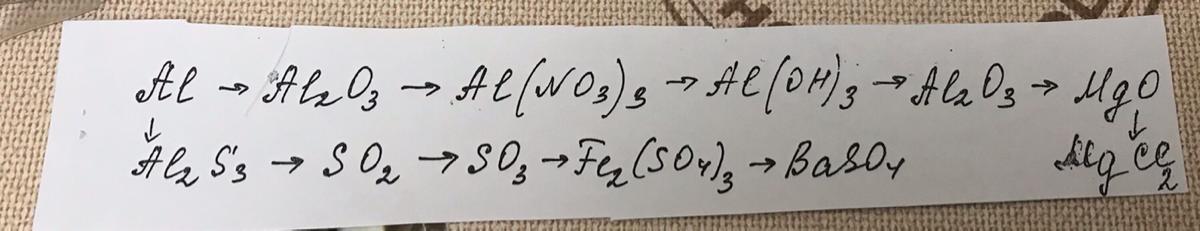 Al → Al₂O₃ → Al(NO₃)₃ → Al(OH)₃ → Al₂O₃ → MgO
↓ ↓
Al₂S₃ → SO₂ → SO₃ → Fe₂(SO₄)₃ → BaSO₄ MgCl₂